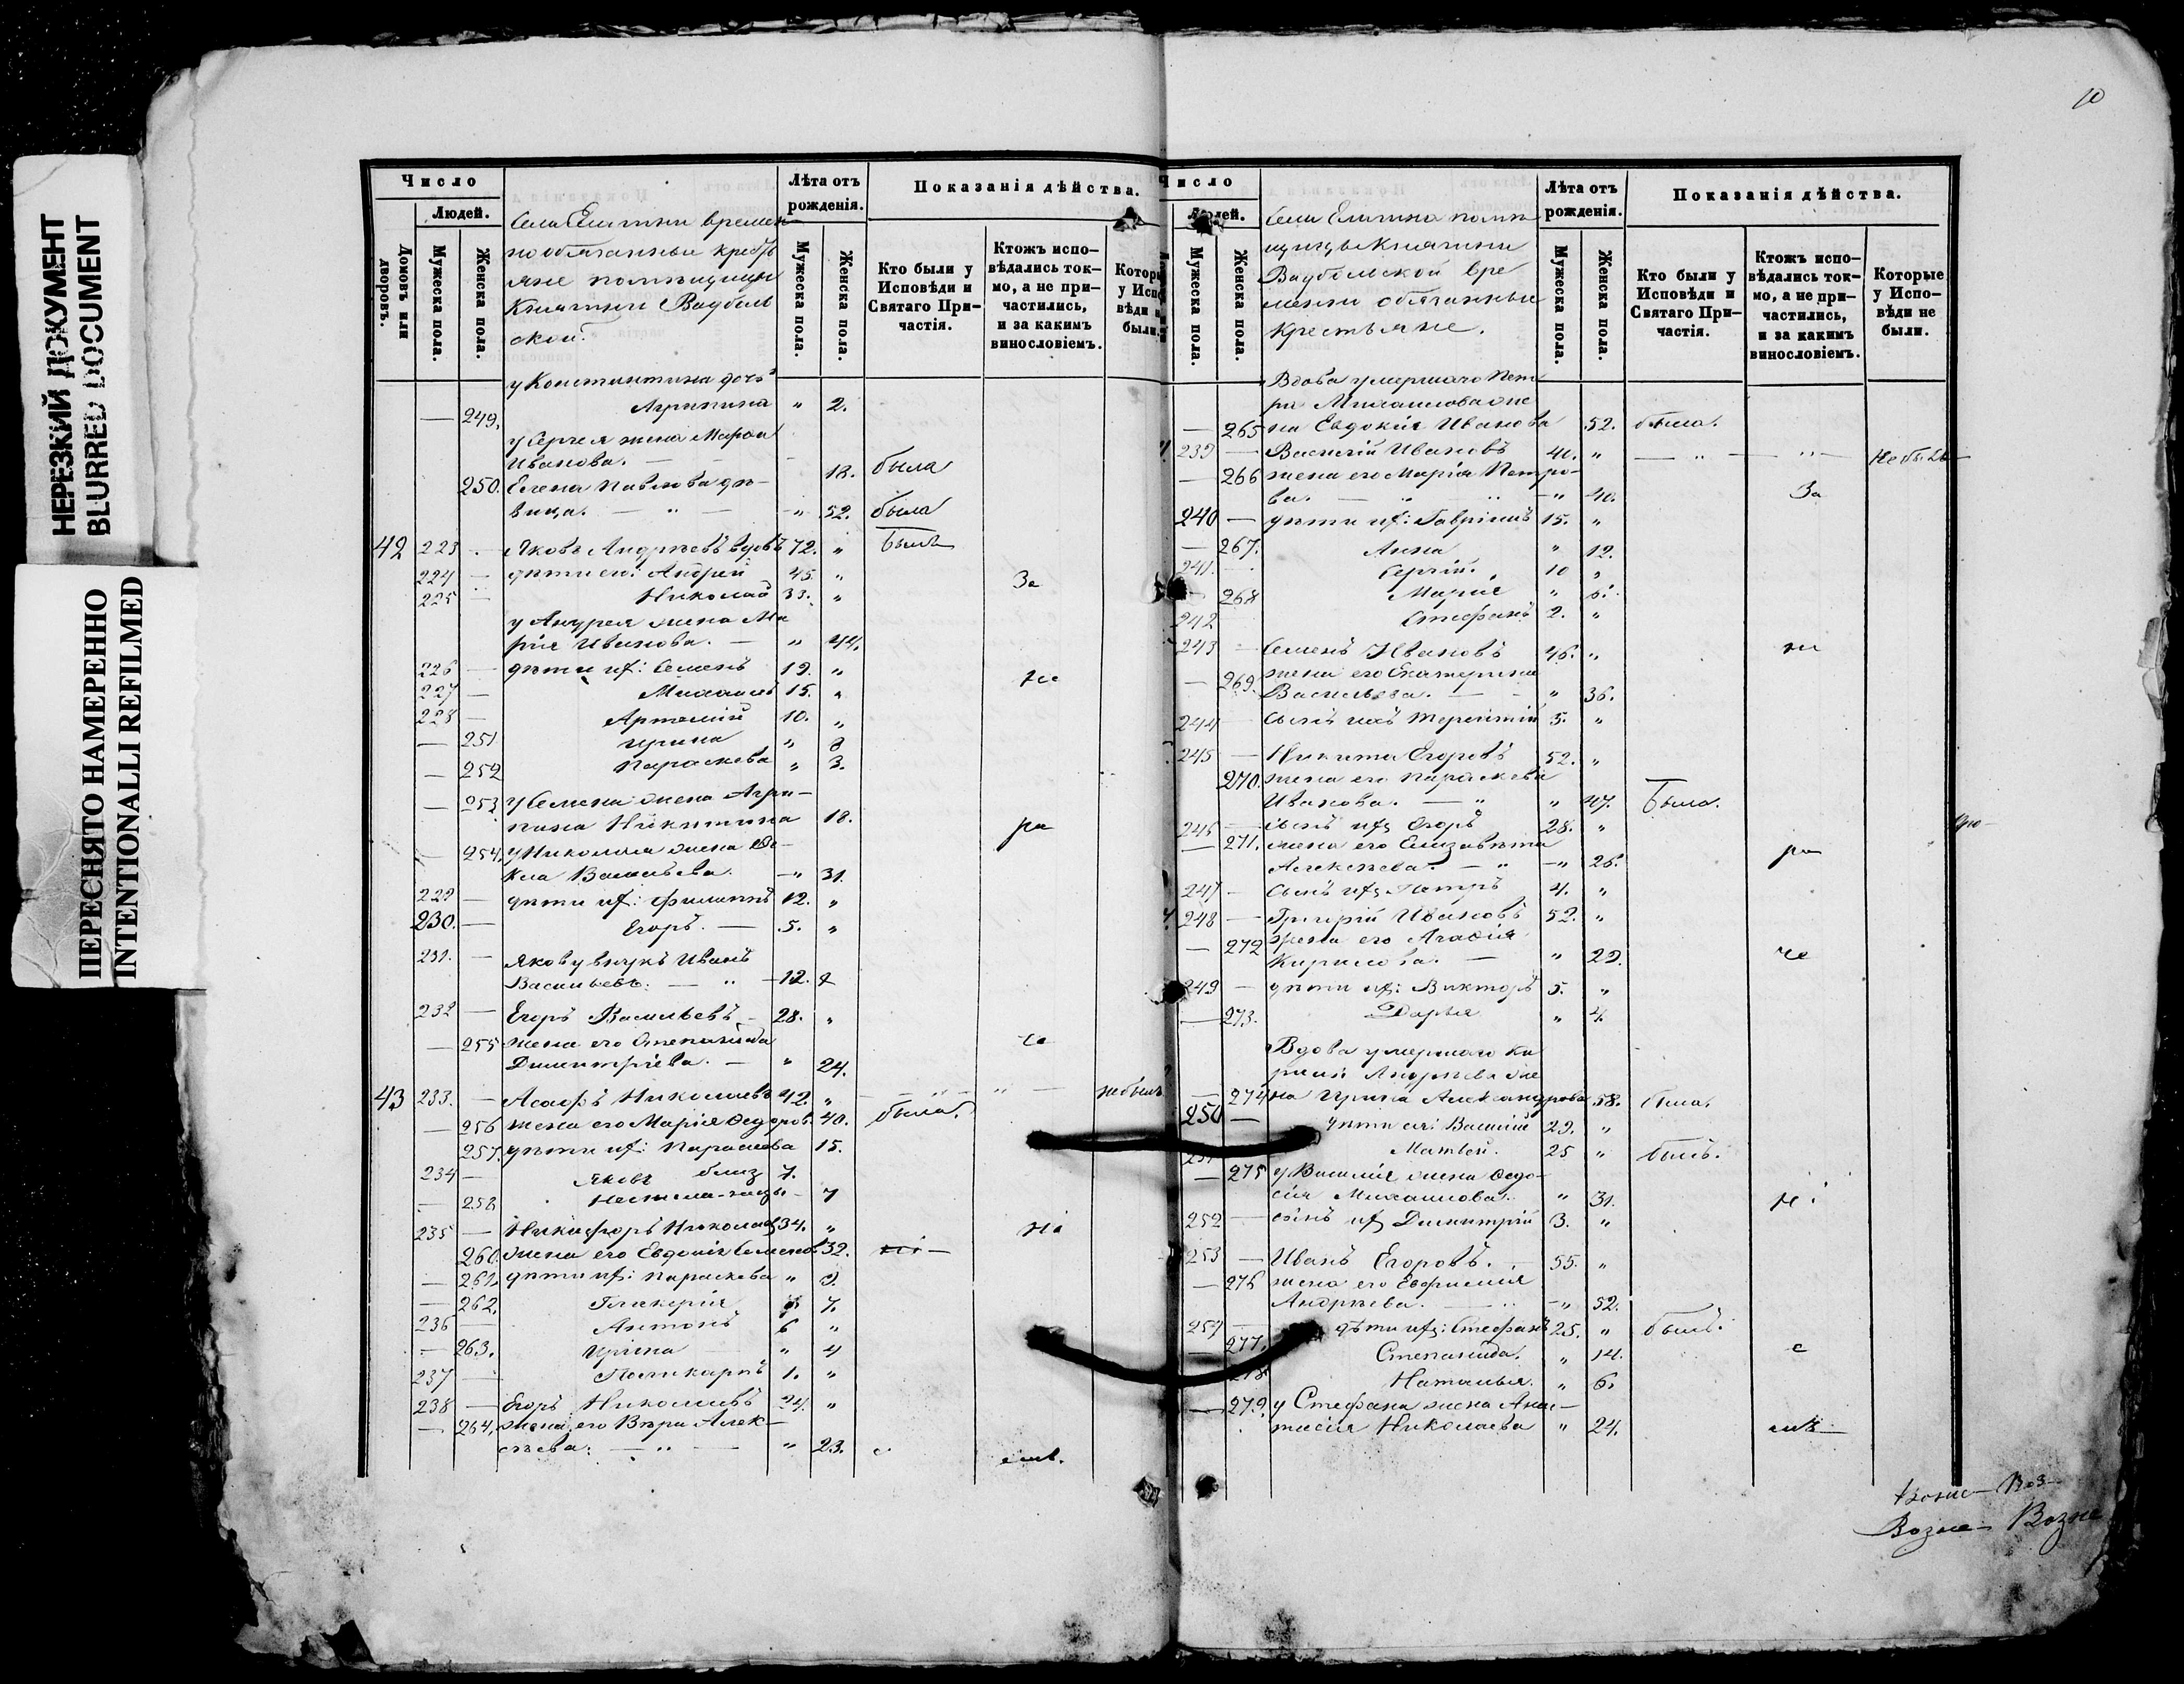 НЕРЕЗКИЙ ДОКУМЕНТ
BLURRED DOCUMENT
ПЕРЕСНЯТО НАМЕРЕННО
INTENTIONALLI REFILMED
Число
Людей.
Домовъ или дворовъ.
Мужеска пола.
Женска пола.
Села Елатини времен
но обязанные кресть
яне помѣщицы
Княгини Вадболь
ской.
Лѣта отъ рожденія.
Мужеска пола.
Женска пола.
Показанія дѣйства.
Кто были у Исповѣди и Святаго Причастія.
Ктожъ исповѣдались токмо, а не причастились, и за какимъ винословіемъ.
Которы
у Испо
вѣди н
были.
у Константина дочь
— 249. Агрипина " 2.
у Сергея жена Марѳа
Иванова. — 18. была
250. Елена Павлова дѣ–
вица. — " — " 52. была
42 223 — Яковъ Андрѣевъ вдовъ 72. " былъ
224 — дѣти его: Андрей 45. " За
225 — Николай 33. "
у Андрея жена Ма
рія Иванова. — " 44.
226 — дѣти их: Семенъ 19. "
227 — Михаилъ 15. " не
228 — Артемій 10. "
— 251 Ирина " 8
— 252 Параскева " 3.
— 253 у Семена жена Агри–
пина Никитина 18. ра
— 254. у Николая жена Ѳе–
кла Васильева. — " 31.
229 — дѣти их: Филиппъ 12. "
230. — Егоръ. — 5. "
231. — Якову внукъ Иванъ
Васильевъ. — " — 12.
232 — Егоръ Васильевъ – 28. "
— 255 жена его Степанида че
Димитріева. — " 24.
43 233. — Николаевъ 42. " — " — " — небылъ
— 256 жена его Марія Ѳедоров. 40. была.
257. дѣти их: Параскева 15.
234 — Яковъ близ 7.
— 258 нецы – 7
235 — Никифоръ Николаев 34. " ні
260. жена его Евдокія Семенов. 32.
— 261. дѣти их: Параскева "
— 262. Гликерія 7.
236 — Антонъ 6 "
— 263. Ирина — " 4
237 — Поликарпъ 1. "
238 — Егоръ Николаевъ 24. "
— 264. жена его Вѣра Алек–
сѣева: — " — " 23.
10
Число
Людей.
Мужеска пола.
Женска пола.
Села Елатина помѣ
щицы Княгини
Вадбольской вре
менно обязанные
крестьяне.
Лѣта отъ рожденія.
Мужеска пола.
Женска пола.
Показанія дѣйства.
Кто были у Исповѣди и Святаго Причастія.
Ктожъ исповѣдались токмо, а не причастились, и за какимъ винословіемъ.
Которые у Исповѣди не были.
Вдова умершаго Пет
ра Михаилова же
— 265 на Евдокія Иванова 52. была.
239 — Василій Ивановъ 40. " — " — " — Не былъ
— 266 жена его Марія Петро–
ва. — " — " 40. За
240 — дѣти их: Гавріилъ 15. "
— 267. Анна " 12.
241. — Сергій. 10 "
— 268 Марія " 6.
242 Стефанъ 2. "
243 — Семенъ Ивановъ 46. " не
— 269. жена его Екатерина
Васильева. — " 36.
244 Сынъ ихъ Терентій 5. "
245 — Никита Егоровъ 52. "
270. жена его Параскева
Иванова. — " " 47. Была.
246 — сынъ их Егоръ 28. "
— 271. жена его Елизавета ра
Алексѣева. — " — " 26.
247 — Сынъ их Петръ 4. "
248 — Григорій Ивановъ 52. "
— 272 жена его Агаѳія
Кирилова. — " 29. че
249 — дѣти их: Викторъ 5. "
— 273. Дарья " 4.
Вдова умершаго Ки
рилы Андрѣева же
— 274 на Ирина Александрова 58. была.
250 — дѣти ея: Василій 29. "
251 Матвей. 25 " былъ.
— 275 у Василія жена Ѳедо–
сія Михаилова. " 31.
252 — сынъ их Димитрій 3. "
253 — Иванъ Егоровъ. – 55. "
— 276 жена его Евфимія
Андрѣева. — " — " 52.
254 — дѣти их: Стефанъ 25. " былъ.
— 277. Степанида. " 14. с
278. Наталья. " 6.
— 279. у Стефана жена Анас–
тасія Николаева " 24.
Возне– Воз–
Возне– Возне